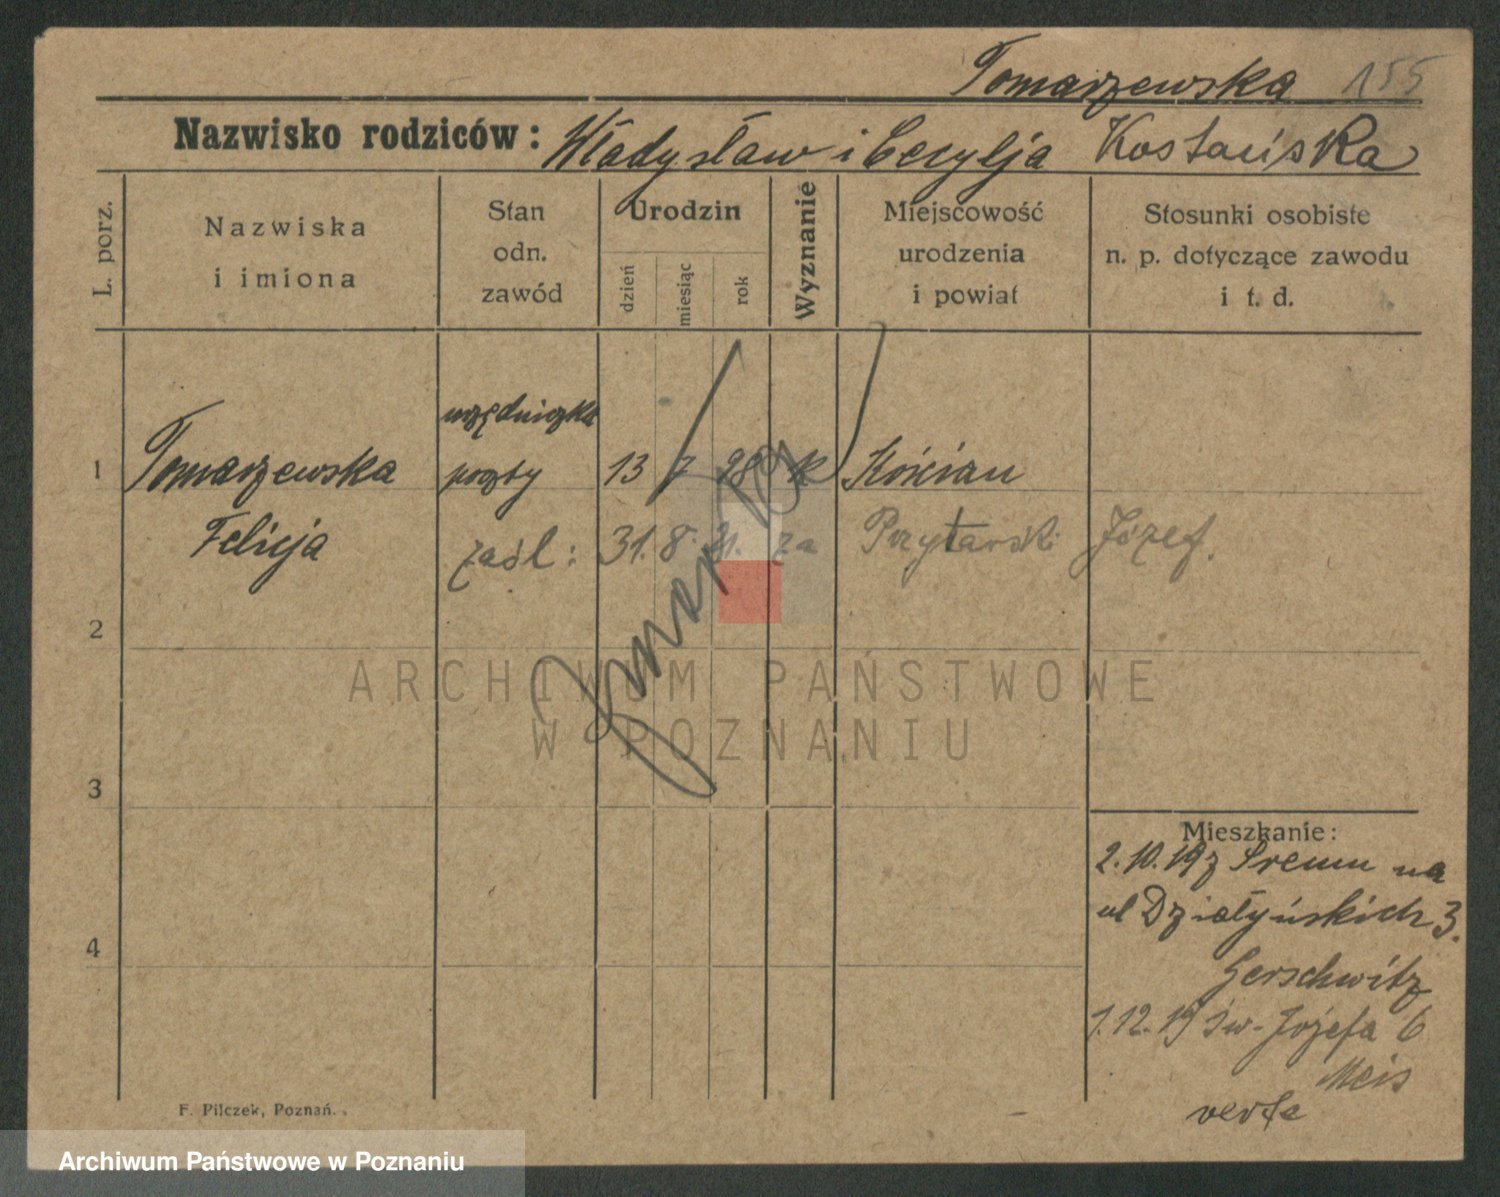 Tomarzewska 155
Nazwisko rodziców: Władysław i Cecylja Kostańska
L. porz.
Nazwiska
i imiona
Stan
odn.
zawód
Urodzin
dzień
miesiąc
rok
Wyznanie
Miejscowość
urodzenia
i powiat
Stosunki osobiste
n. p. dotyczące zawodu
i t. d.
urzędniczka
1 Tomarzewska poczty 13 7 98 k Kościan
Felicja zaśl: 31. 8. 21. za Przytarski Józef.
2
3
4
ARCHIWUM PAŃSTWOWE
W POZNANIU
Mieszkanie:
2.10.19 z Śremu na
ul Działyńskich 3.
Gerschwitz
1.12.19 św-Józefa 6
Meis
verte
F. Pilczek, Poznań.
Archiwum Państwowe w Poznaniu